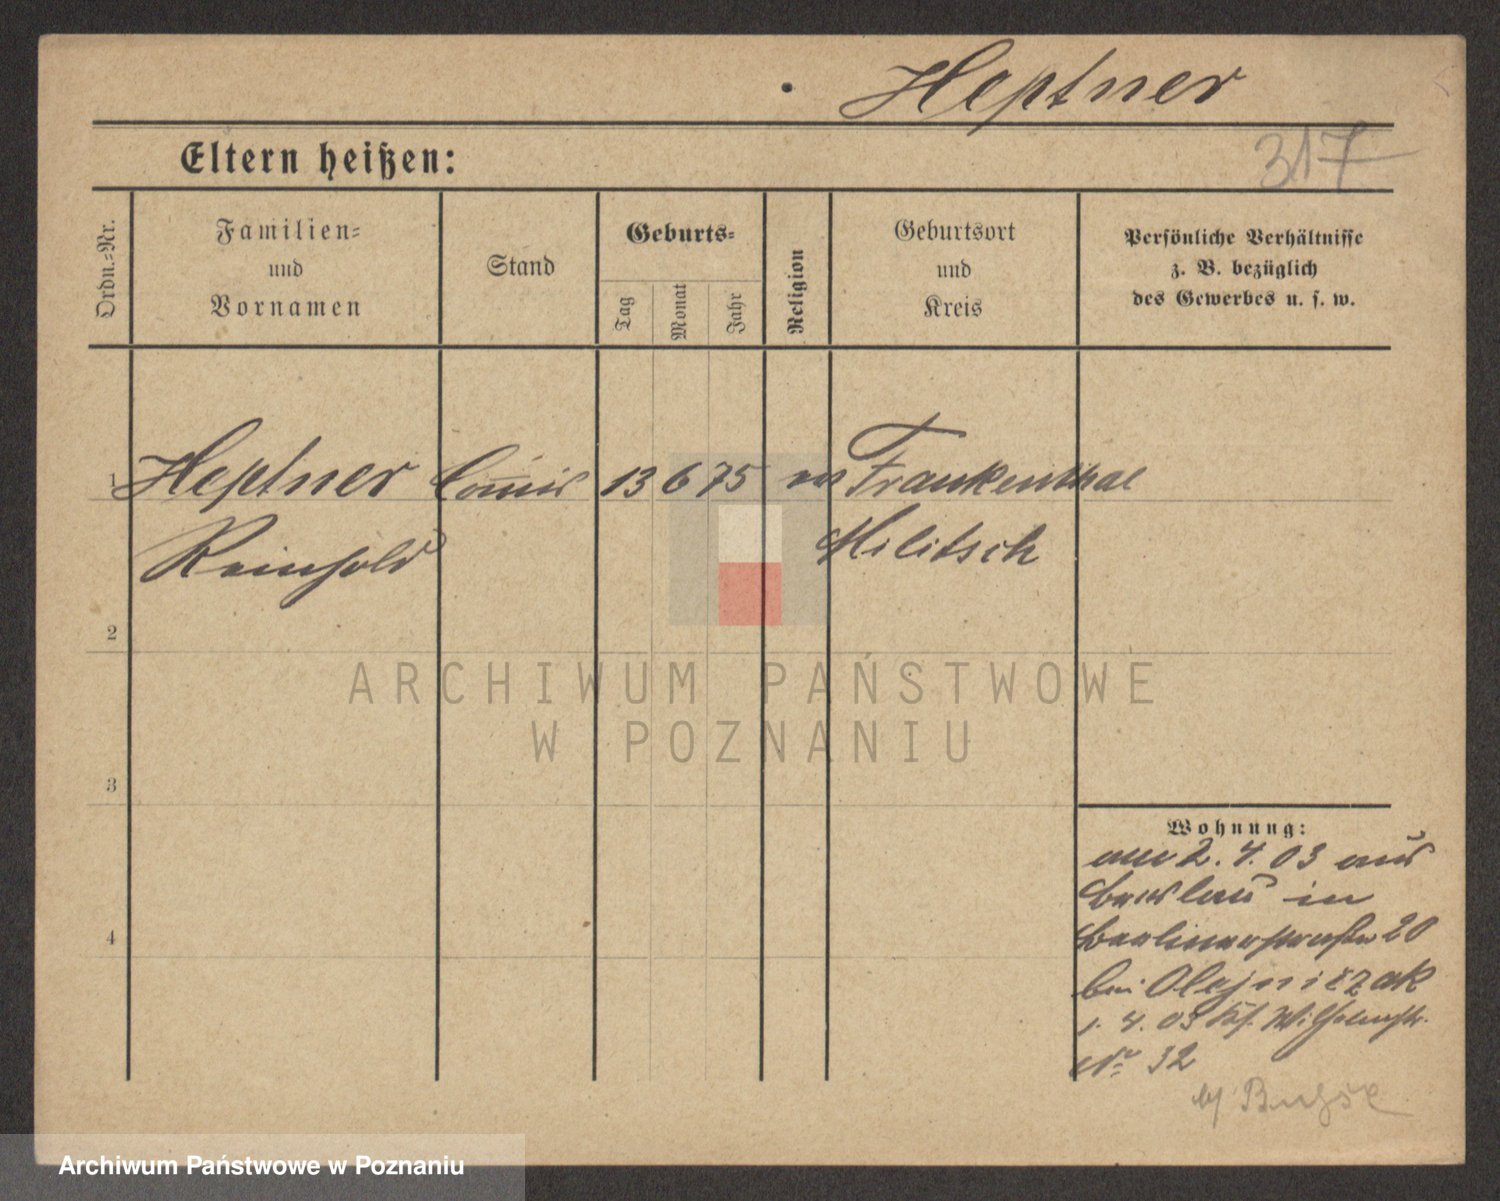 Heptner
317
Eltern heißen:
Ordn.-Nr.
Familien-
und
Vornamen
Stand
Geburts-
Tag
Monat
Jahr
Religion
Geburtsort
und
Kreis
Persönliche Verhältnisse
z. B. bezüglich
des Gewerbes u. s. w.
1 Heptner Com̅is 13 6 75 ev Frankenthal
Reinhold Militsch
2
ARCHIWUM PAŃSTWOWE
W POZNANIU
3
Wohnung:
am 2. 4. 03 aus
Breslau in
4
Berlinerstraße 20
bei Olejniczak
1. 4. 03 Kf. Wilhelmstr.
No 32
b/
Archiwum Państwowe w Poznaniu